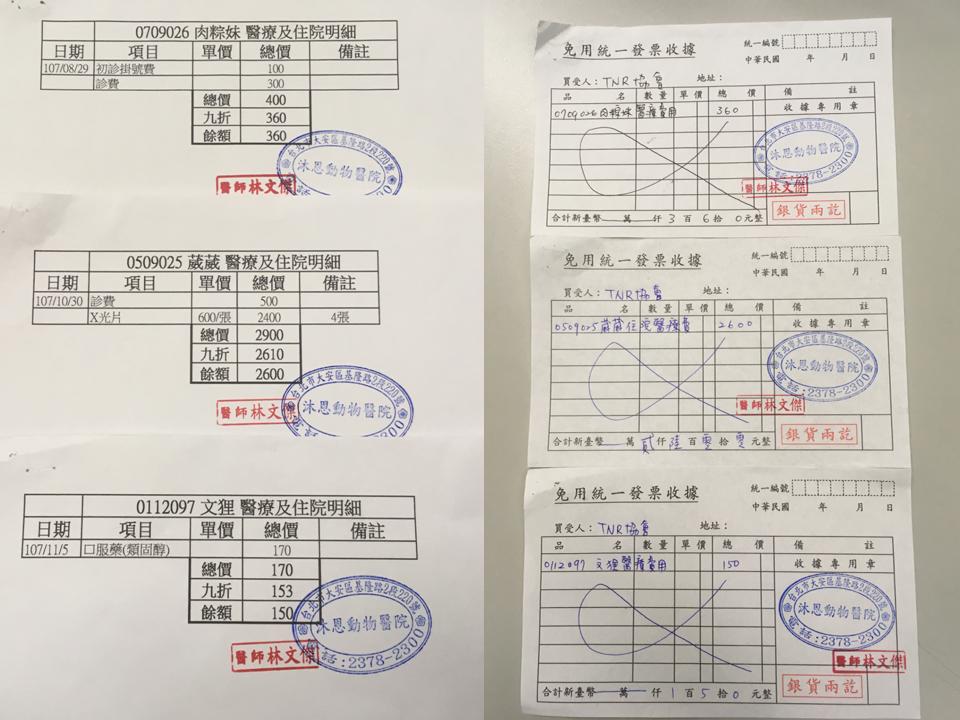 0709026 肉粽妹 醫療及住院明細
日期 項目 單價 總價 備註
107/08/29 初診掛號費 100
診費 300
總價 400
九折 360
餘額 360
台北市大安區基隆路2段220號
沐恩動物醫院
醫師林文傑
0509025 葳葳 醫療及住院明細
日期 項目 單價 總價 備註
107/10/30 診費 500
X光片 600/張 2400 4張
總價 2900
九折 2610
餘額 2600
台北市大安區基隆路2段220號
沐恩動物醫院
醫師林文傑
0112097 文狸 醫療及住院明細
日期 項目 單價 總價 備註
107/11/5 口服藥(類固醇) 170
總價 170
九折 153
餘額 150
台北市大安區基隆路2段220號
沐恩動物醫院
電話:2378-2300
醫師林文傑
免用統一發票收據
統一編號
中華民國 年 月 日
買受人:TNR協會 地址:
品 名 數量 單價 總 價 備 註
0709026肉粽妹醫療費用 360 收據專用章
台北市大安區基隆路2段220號
沐恩動物醫院
電話:2378-2300
醫師林文傑
銀貨兩訖
合計新臺幣 萬 仟 3 百 6 拾 0 元整
免用統一發票收據
統一編號
中華民國 年 月 日
買受人:TNR協會 地址:
品 名 數量 單價 總 價 備 註
0509025葳葳住院醫療費 2600 收據專用章
台北市大安區基隆路2段220號
沐恩動物醫院
電話:2378-2300
醫師林文傑
銀貨兩訖
合計新臺幣 萬 貳 仟 陸 百 零 拾 零 元整
免用統一發票收據
統一編號
中華民國 年 月 日
買受人:TNR協會 地址:
品 名 數量 單價 總 價 備 註
0112097 文狸醫療費用 150 收據專用章
台北市大安區基隆路2段220號
沐恩動物醫院
電話:2378-2300
醫師林文傑
銀貨兩訖
合計新臺幣 萬 仟 1 百 5 拾 0 元整